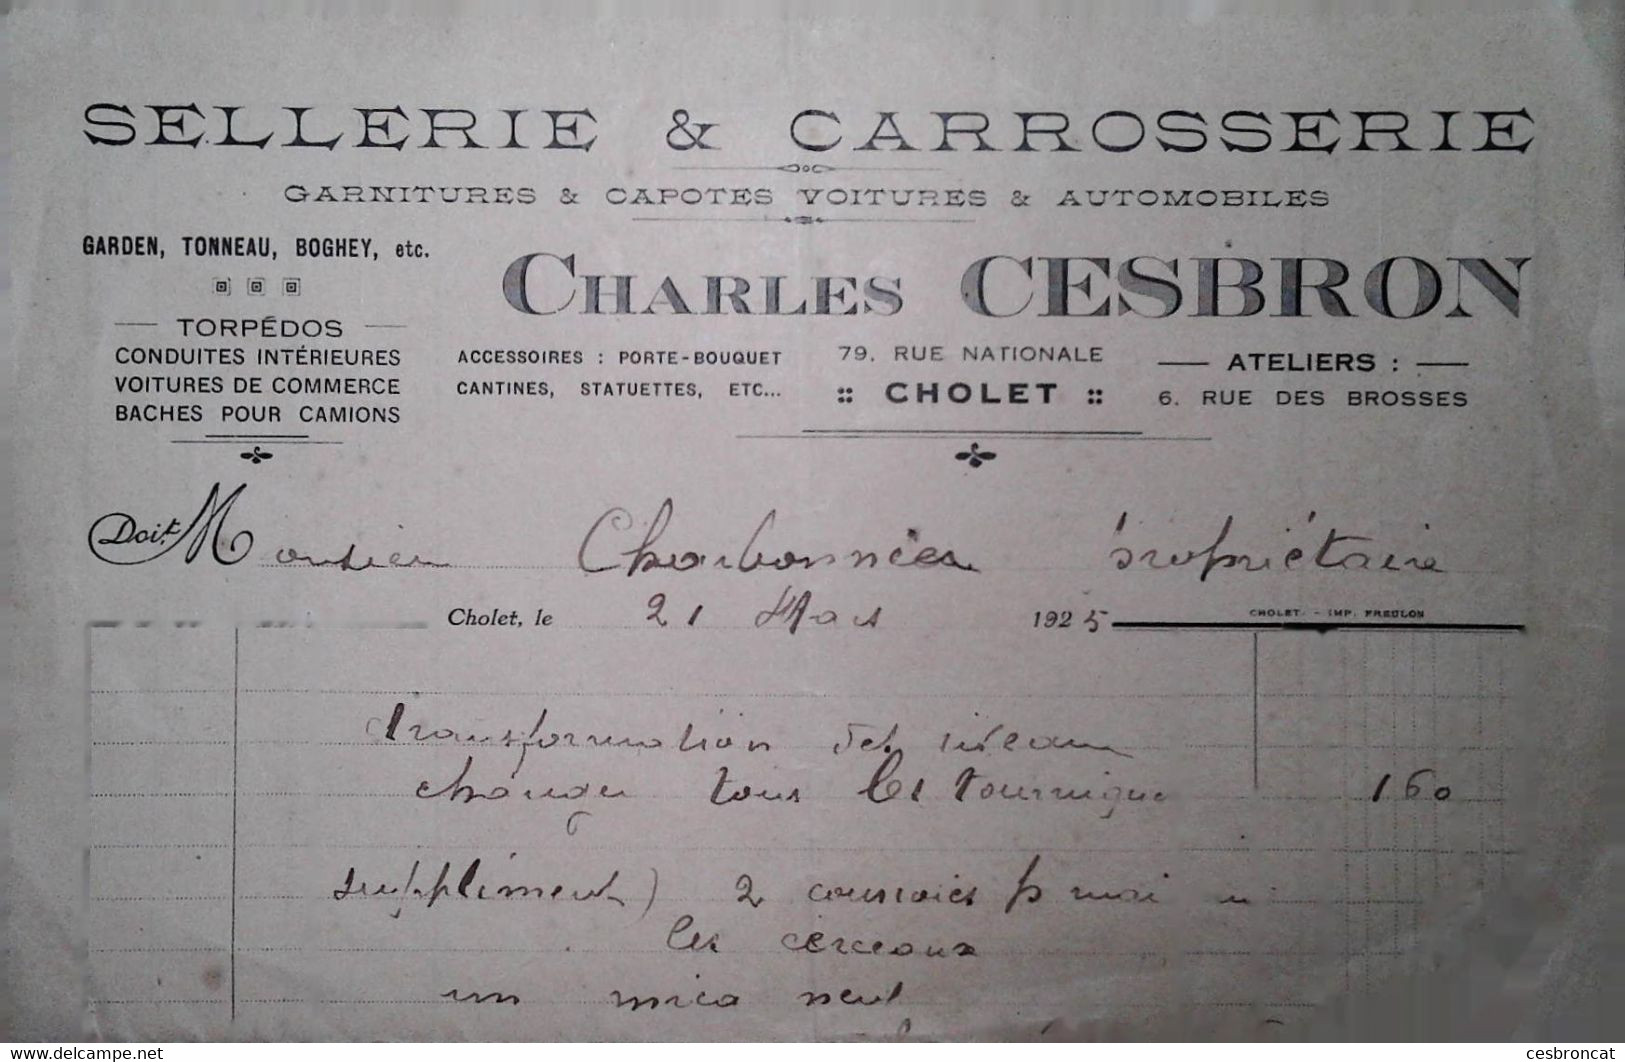 SELLERIE & CARROSSERIE
GARNITURES & CAPOTES VOITURES & AUTOMOBILES
GARDEN, TONNEAU, BOGHEY, etc.
CHARLES CESBRON
TORPÉDOS
CONDUITES INTÉRIEURES
VOITURES DE COMMERCE
BACHES POUR CAMIONS
ACCESSOIRES : PORTE-BOUQUET
CANTINES, STATUETTES, ETC...
79. RUE NATIONALE
:: CHOLET ::
ATELIERS :
6. RUE DES BROSSES
Doit Monsieur Charbonnier propriétaire
Cholet, le 21 Mars 1925
CHOLET. - IMP. FREULON
transformation des
changer tous les tourniquet 160
supplément) 2 courroies p
les cerceaux
un mica neuf
www.delcampe.net
cesbroncat